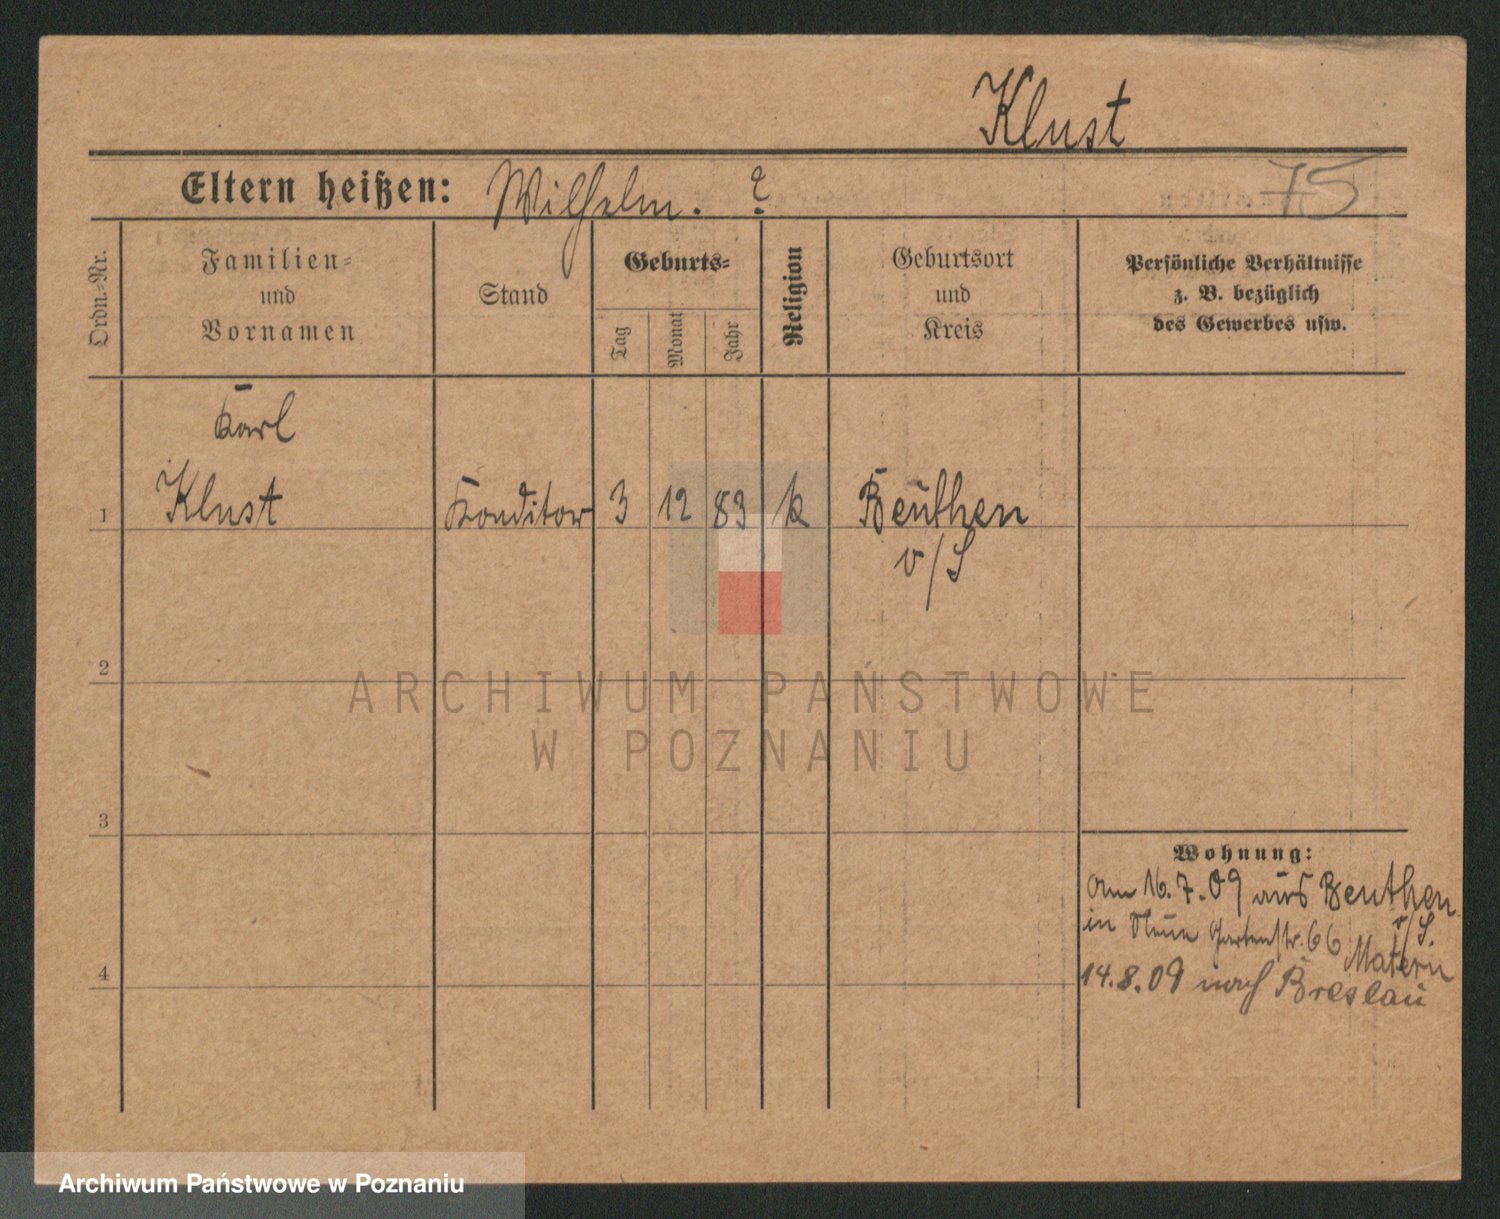 Klust
75
Eltern heißen: Wilhelm. ?
Ordn.-Nr.
Familien-
und
Vornamen
Stand
Geburts-
Tag
Monat
Jahr
Religion
Geburtsort
und
Kreis
Persönliche Verhältnisse
z. B. bezüglich
des Gewerbes usw.
Karl
1 Klust Konditor 3 12 83 k Beuthen
o/S
2
3
4
Wohnung:
am 16.7.09 aus Beuthen
o/S.
in Neue Gartenstr. 66 Matern
14.8.09 nach Breslau
ARCHIWUM PAŃSTWOWE
W POZNANIU
Archiwum Państwowe w Poznaniu